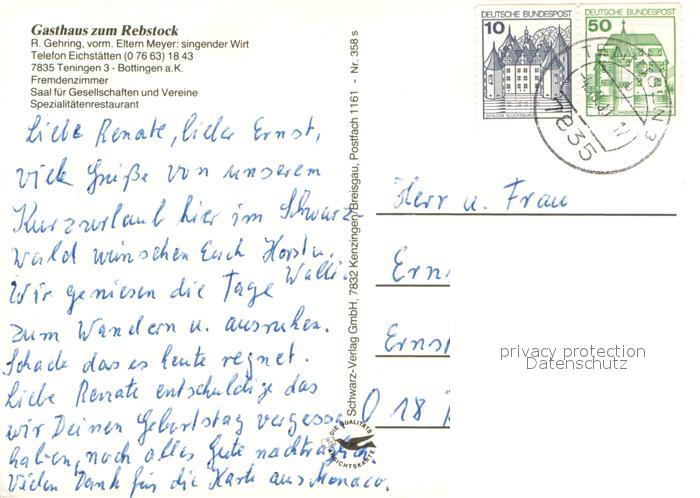 Gasthaus zum Rebstock
R. Gehring, vorm. Eltern Meyer: singender Wirt
Telefon Eichstätten (0 76 63) 18 43
7835 Teningen 3 - Bottingen a.K.
Fremdenzimmer
Saal für Gesellschaften und Vereine
Spezialitätenrestaurant
Liebe Renate, lieber Ernst,
viele Grüße von unserem
Kurzurlaub hier im Schwarz-
wald wünschen Euch Horst u.
Walli.
Wir geniesen die Tage
zum Wandern u. ausruhen.
Schade das es heute regnet.
Liebe Renate entschuldige das
wir Deinen Geburtstag vergessen
haben, noch alles Gute nachträglich.
Vielen Dank für die Karte aus Monaco.
Schwarz-Verlag GmbH, 7832 Kenzingen/Breisgau, Postfach 1161 - Nr. 358 s
DIE QUALITÄTS
ANSICHTSKARTE
10
DEUTSCHE BUNDESPOST
SCHLOSS GLÜCKSBURG
50
DEUTSCHE BUNDESPOST
TENINGEN 3
7835
Herr u. Frau
Ern
Ernst
D 18
privacy protection
Datenschutz